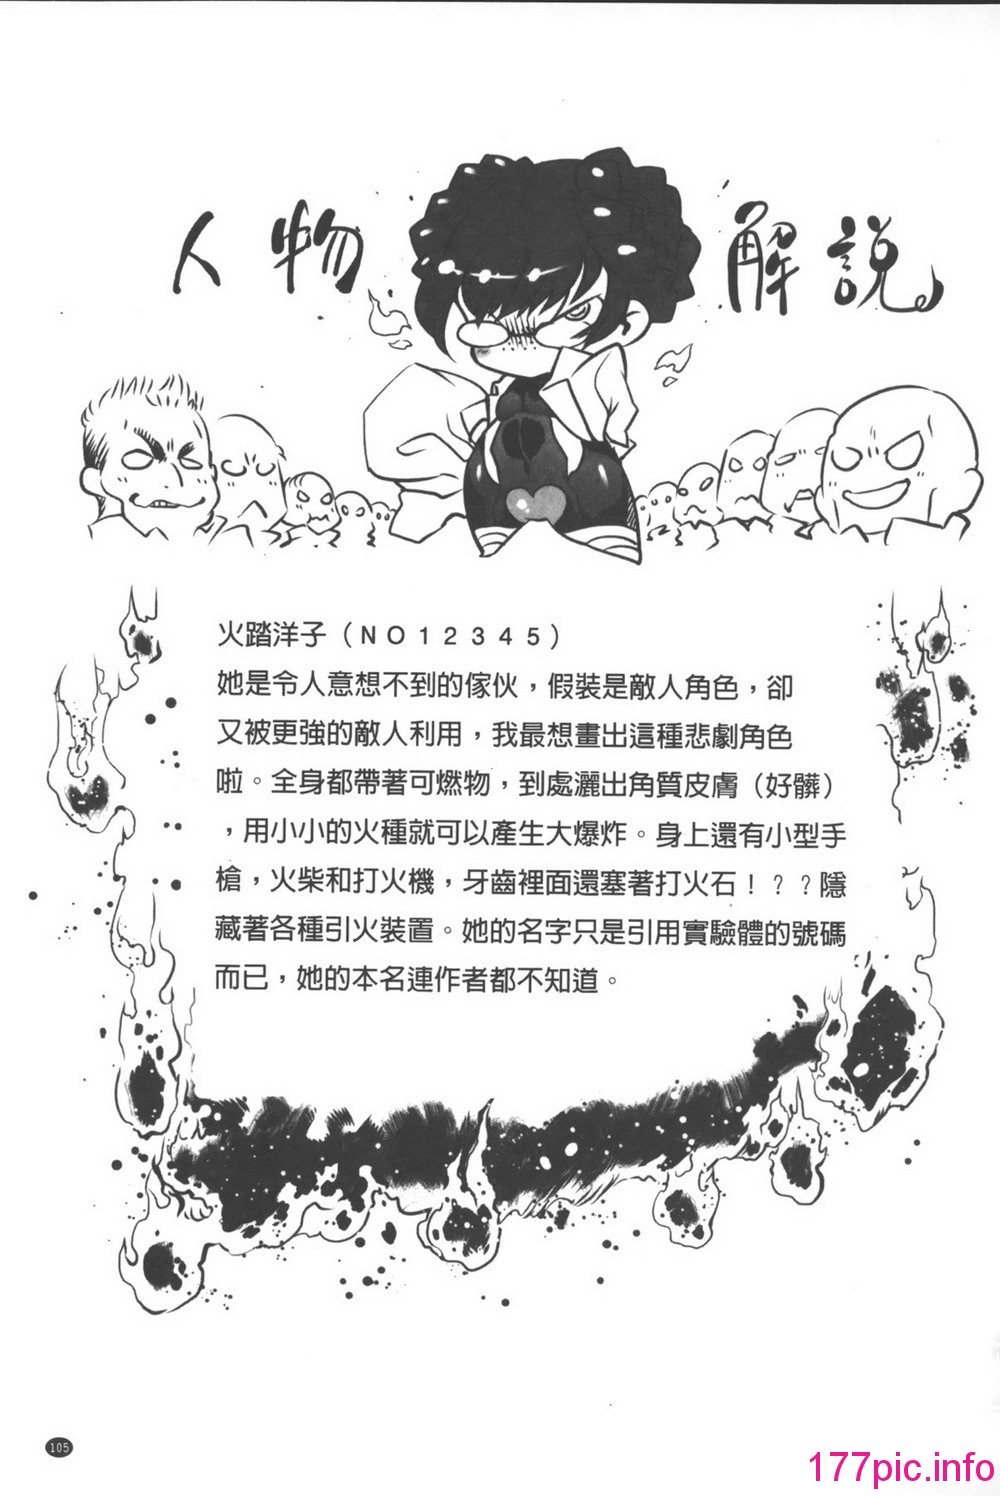 人物解説
火踏洋子(NO12345)
她是令人意想不到的傢伙，假裝是敵人角色，卻
又被更強的敵人利用，我最想畫出這種悲劇角色
啦。全身都帶著可燃物，到處灑出角質皮膚(好髒)
，用小小的火種就可以產生大爆炸。身上還有小型手
槍，火柴和打火機，牙齒裡面還塞著打火石！？？隱
藏著各種引火裝置。她的名字只是引用實驗體的號碼
而已，她的本名連作者都不知道。
105
177pic.info